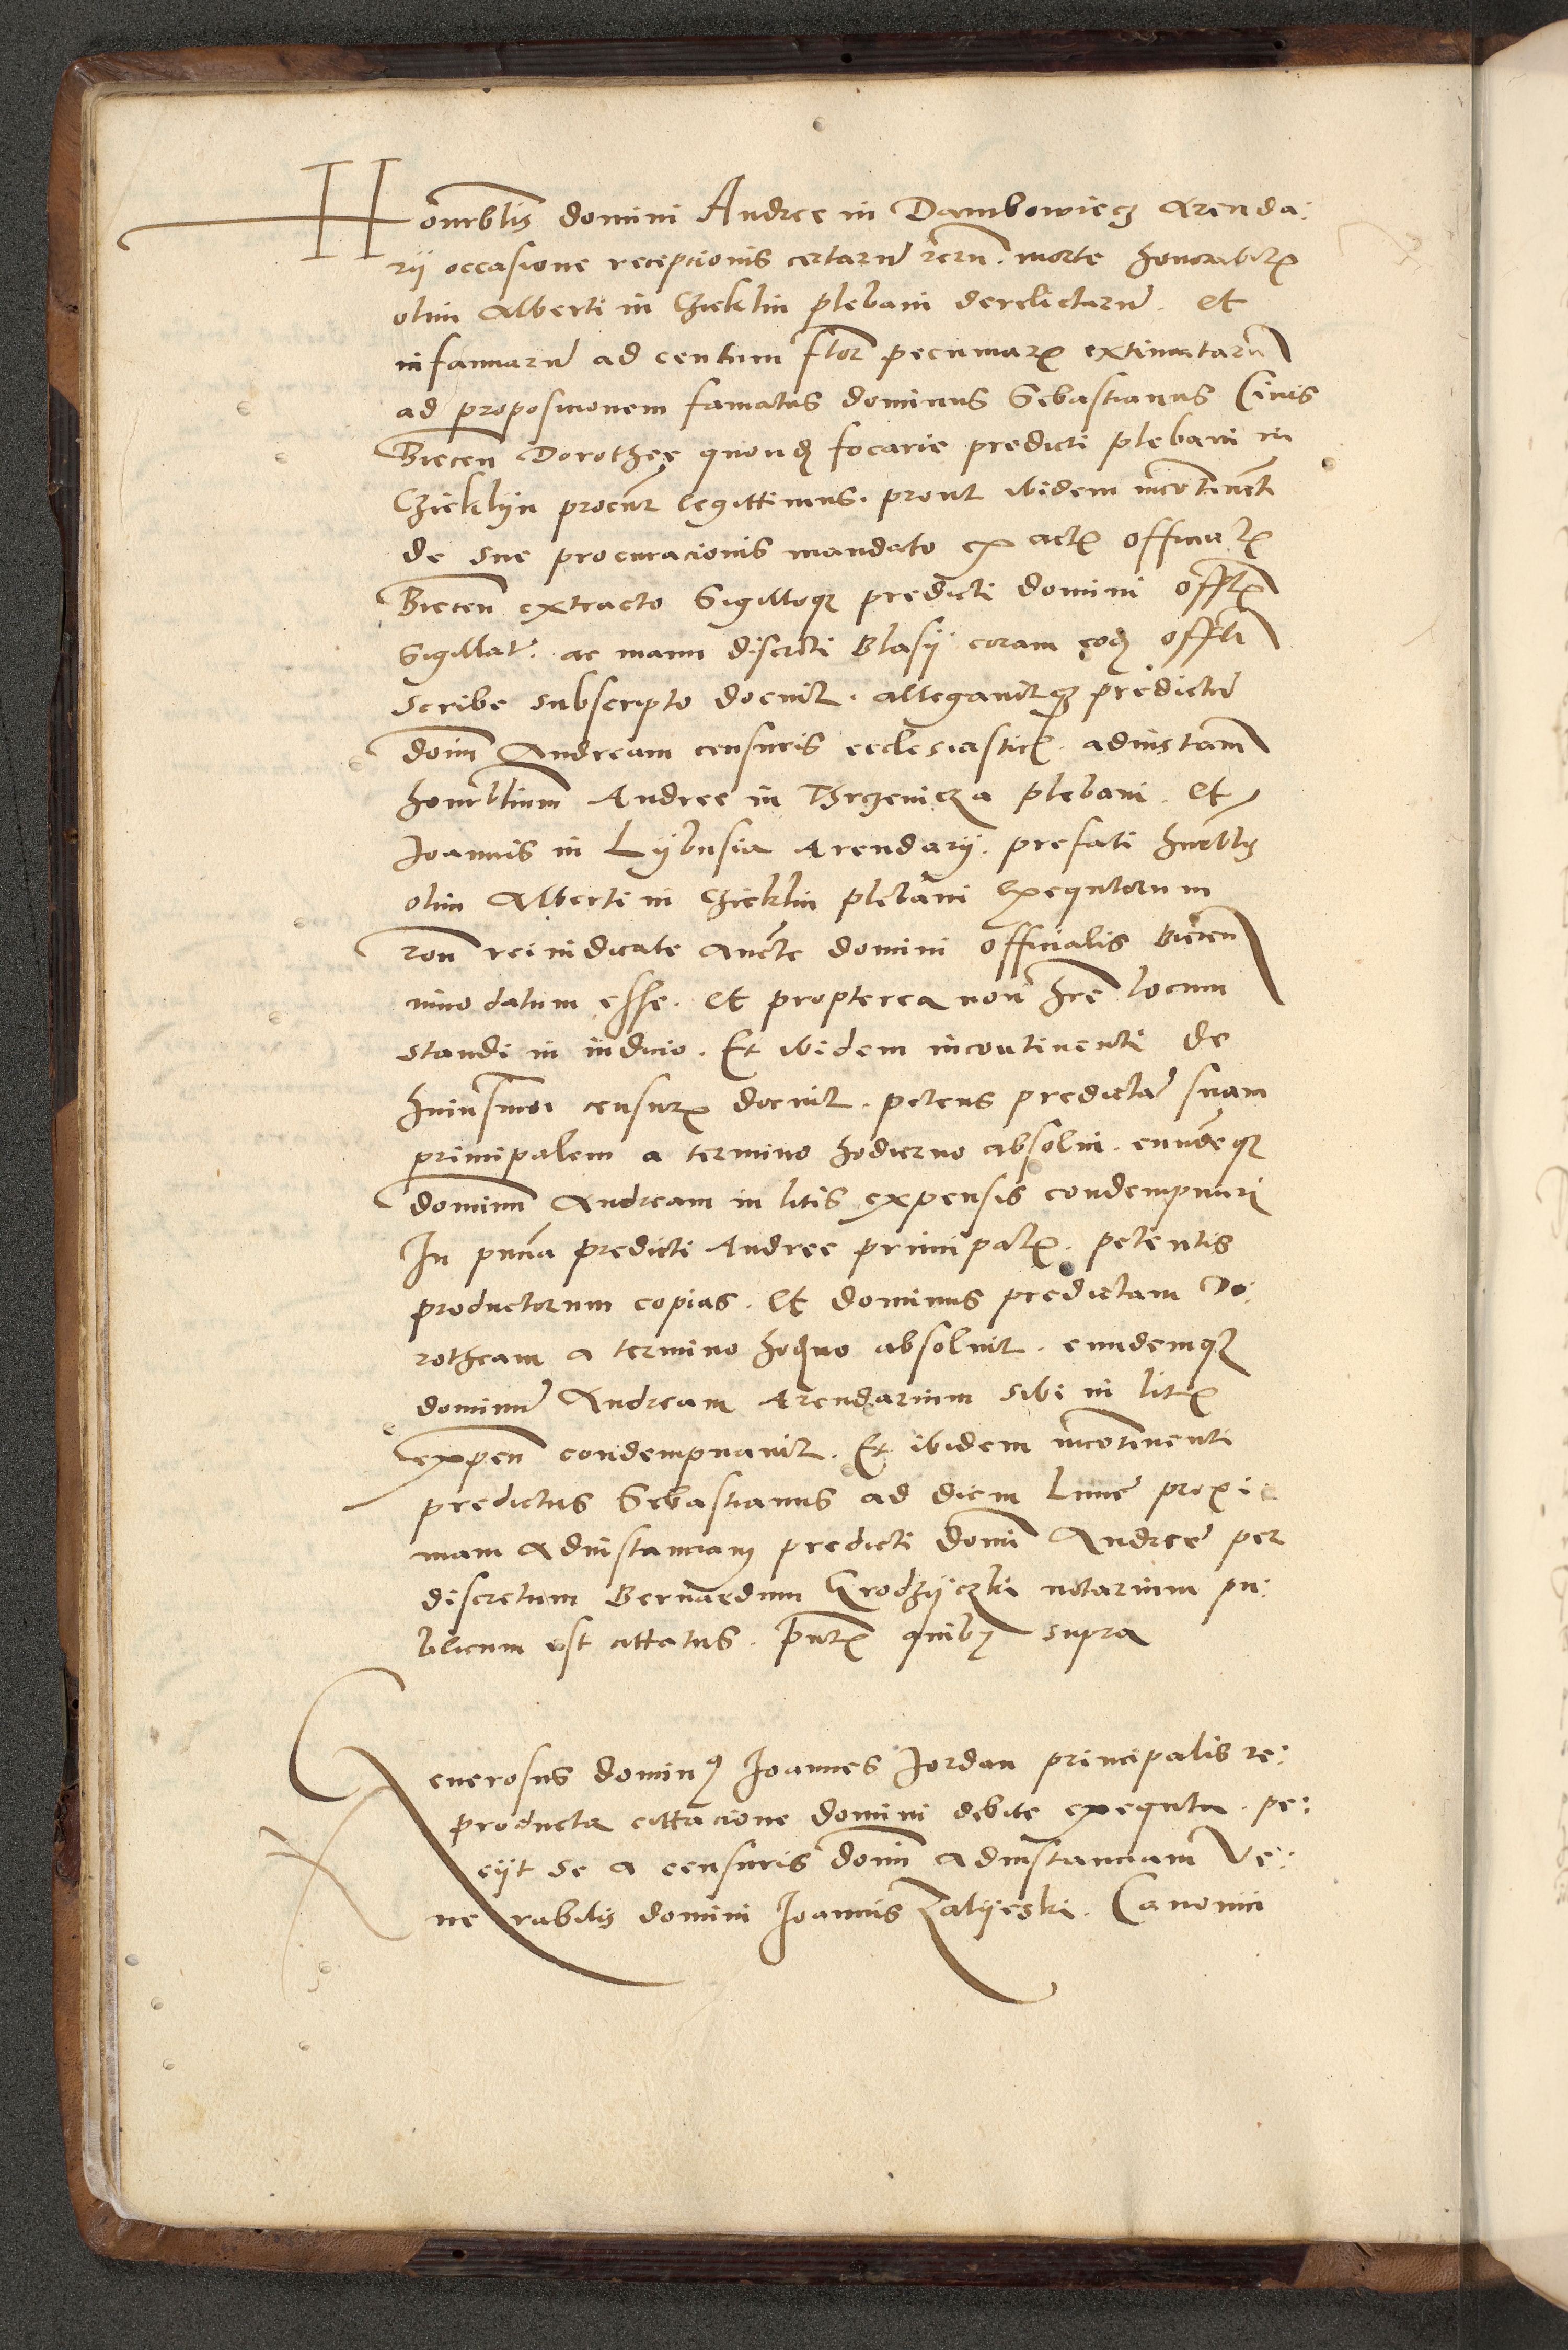 Honorblis domini Andree in Dambowiecz Arenda:
rij occasione recepcionis certarum rerum. morte honorabilis
olim Alberti in Czieklin plebani derelictarum. et
infamiarum ad centum flor pecuniarum extimatarum
ad proposicionem famatus dominus Sebastianus Civis
Biecen Dorothee quondam focarie predicti plebani in
Czieklyn procur legittimus. prout ibidem incontinenti
de sue procuracionis mandato ex actis officialis
Biecen extracto Sigilloque predicti domini offlis
Sigillat. ac manu discreti Blasij coram eodem offli
scribe subscripto docuit. allegavitque predictum
dominum Andream censuris ecclesiasticis. adinstam
honorbilium Andree in Thrzenicza plebani. et
Joannis in Lybusia Arendarij. prefati honorblis
olim Alberti in Czieklin plebani exequtorum
ron rei iudicate aucte domini officialis Biecen
innodatum esse. et propterea non hre locum
standi in iudicio. Et ibidem incontinenti de
huiusmodi censuris docuit. petens predictam suam
principalem a termino hodierno absolvi. eundemque
dominum Andream in litis expensis condempnari
In pncia predicti Andree principalis. petentis
productorum copias. et dominus predictam Do:
rotheam a termino hodierno absolvit. eundemque
dominum Andream Arendarium sibi in litis
expen condempnavit. Et ibidem incontinenti
predictus Sebastianus ad diem Lune proxi:
mam adinstanciam predicti domini Andree per
discretum Bernardum Grodzyczki notarium pu:
blicum est cittatus. pntibus quibus supra
Generosus dominus Joannes Jordan principalis re:
producta cittacione domini debite exequta. pe:
ciit se a censuris domini adinstanciam Ve:
nerabilis domini Joannis Zalyeski. Canonici